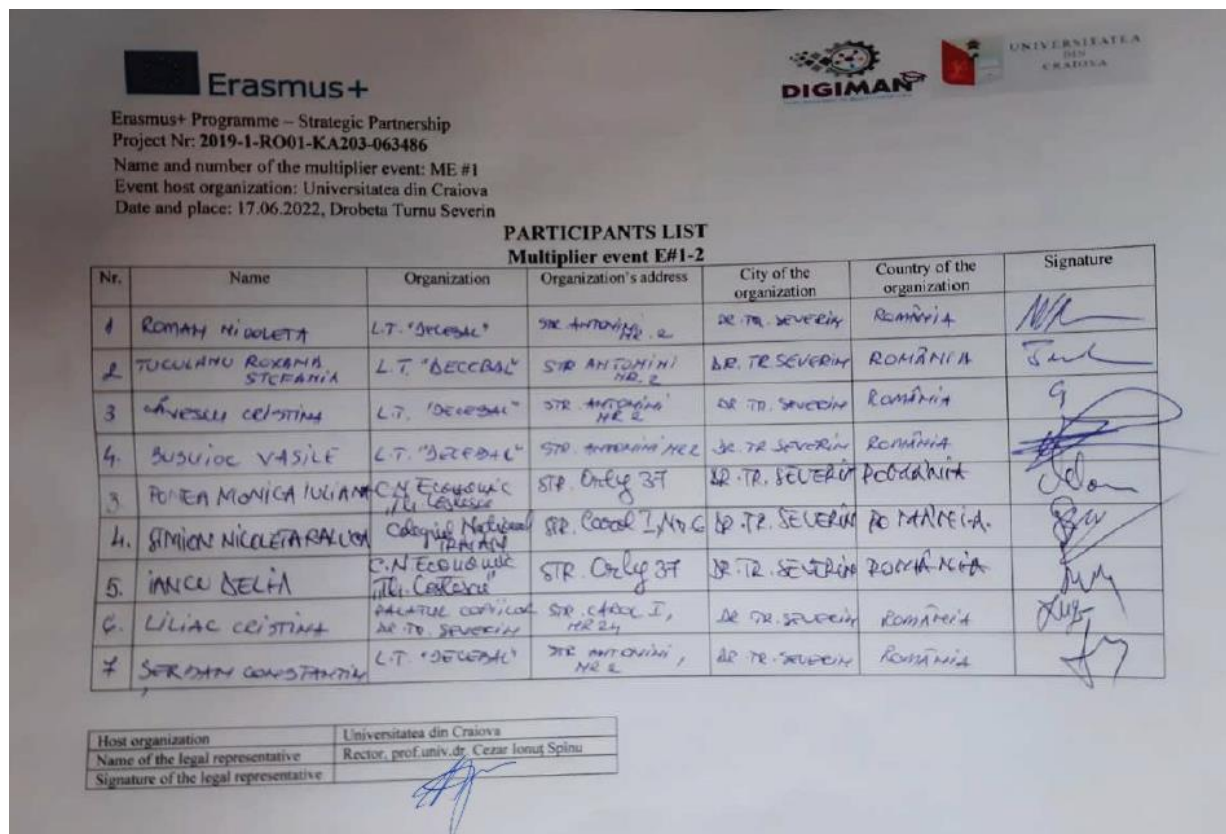 Erasmus+
DIGIMAN
UNIVERSITATEA
DIN
CRAIOVA
Erasmus+ Programme – Strategic Partnership
Project Nr: 2019-1-RO01-KA203-063486
Name and number of the multiplier event: ME #1
Event host organization: Universitatea din Craiova
Date and place: 17.06.2022, Drobeta Turnu Severin
PARTICIPANTS LIST
Multiplier event E#1-2
Nr. Name Organization Organization's address City of the organization Country of the organization Signature
1 ROMAN NICOLETA L.T. "DECEBAL" STR ANTONINI NR. 2 DR. TR. SEVERIN ROMÂNIA
2 TUCULANU ROXANA STEFANIA L.T. "DECEBAL" STR ANTONINI NR. 2 DR. TR. SEVERIN ROMÂNIA
3 CRISTINA L.T. "DECEBAL" STR. ANTONINI NR 2 DR TR. SEVERIN ROMÂNIA
4. BUSUIOC VASILE L.T. "DECEBAL" STR. ANTONINI NR 2 DR. TR SEVERIN ROMÂNIA
3. MONICA IULIANA C.N. ECONOMIC STR. Orly 37 DR. TR. SEVERIN ROMÂNIA
4. SIMION NICOLETA RALUCA Colegiul National TRAIAN STR. Carol I, Nr 6 DR. TR. SEVERIN ROMANIA.
5. IANCU DELIA C.N. ECONOMIC STR. Orly 37 DR. TR. SEVERIN ROMÂNIA
6. LILIAC CRISTINA PALATUL COPIILOR DR. TR. SEVERIN STR. CAROL I, NR 24 DR TR. SEVERIN ROMÂNIA
7 SERBAN CONSTANTIN L.T. "DECEBAL" STR ANTONINI, NR 2 DR. TR. SEVERIN ROMÂNIA
Host organization Universitatea din Craiova
Name of the legal representative Rector, prof.univ.dr. Cezar Ionuț Spînu
Signature of the legal representative